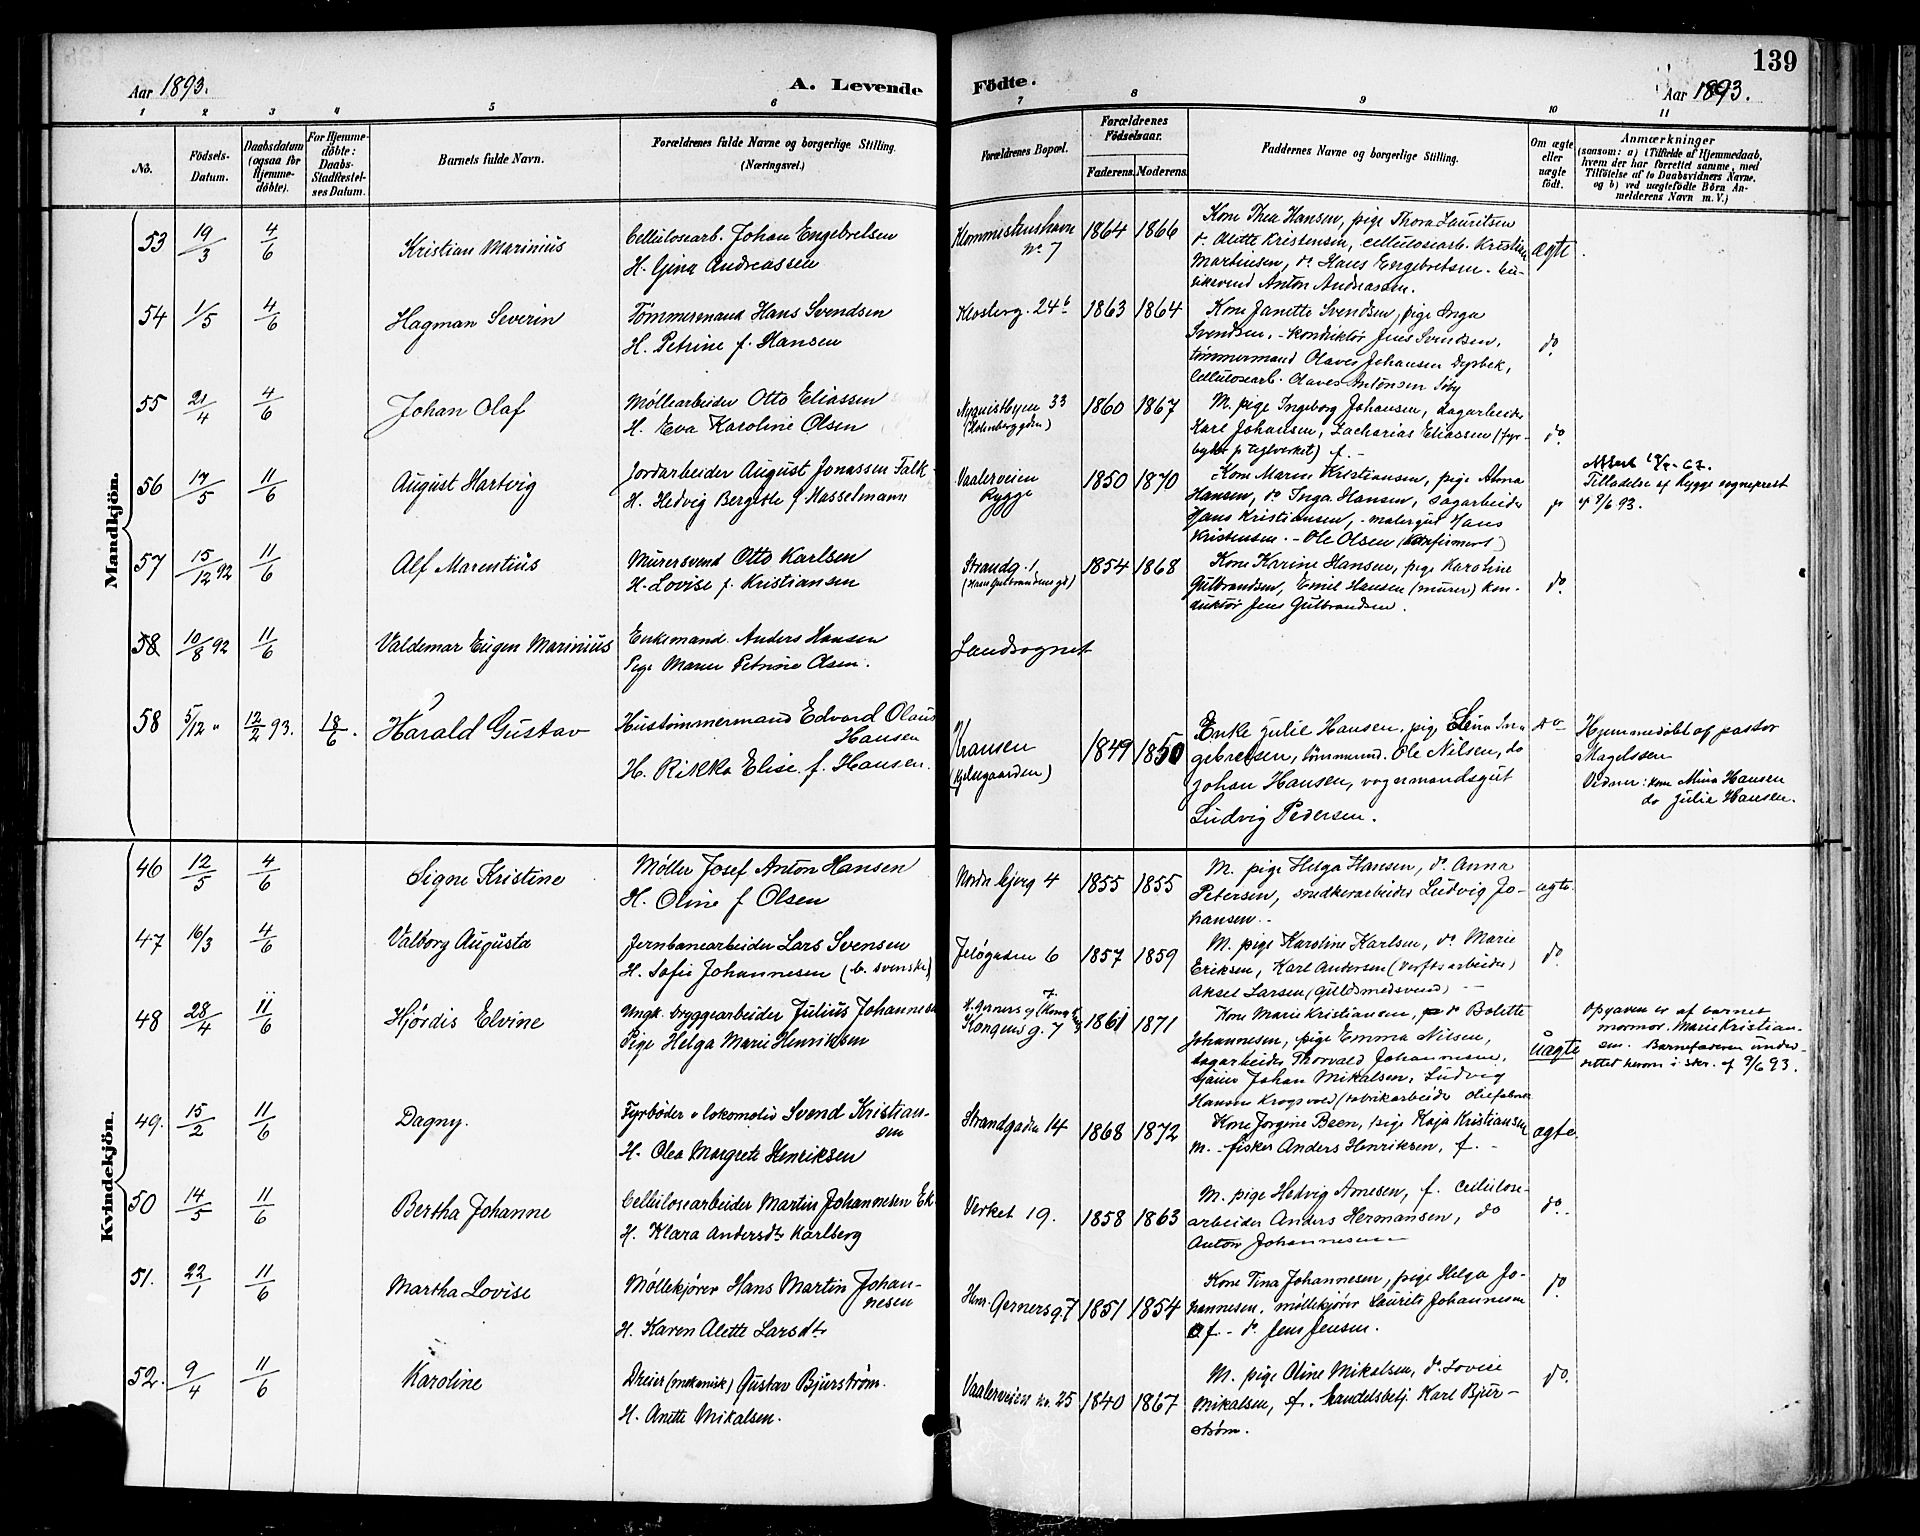 139
Aar 1893.
A. Levende Födte.
Aar 1893.
1 2 3 4 5 6 7 8 9 10 11
No.
Födsels-Datum.
Daabsdatum (ogsaa for Hjemme-döbte).
For Hjemme-döbte: Daabs-Stadfæstel-ses Datum.
Barnets fulde Navn.
Forældrenes fulde Navne og borgerlige Stilling.
(Næringsvei.)
Forældrenes Bopæl.
Forældrenes Födselsaar.
Faderens. Moderens.
Faddernes Navne og borgerlige Stilling.
Om ægte eller uægte födt.
Anmærkninger
(saasom: a) i Tilfælde af Hjemmedaab,
hvem der har forrettet samme, med
Tilföielse af to Daabsvidners Navne,
og b) ved uægtefödte Börn An-
melderens Navn m. V.)
Mandkjön.
53 19/3 4/6 Kristian Marinius
Cellulosearb. Johan Engebretsen
H. Gina Andreassen
No 7
1864 1866
Kone Thea Hansen, pige Thora Lauritsen
do Alette Kristensen, cellulosearb. Kristian
Martinsen, do Hans Engebretsen
Anton Andreassen.
ægte
54 1/5 4/6 Hagman Severin
Tømmermand Hans Svendsen
H. Petrine f. Hansen
Klosterg. 24b
1863 1864
Kone Janette Svendsen, pige Inga
Svendsen, konduktør Jens Svendsen,
tømmermand Olaves Johansen Dyrbek,
Cellulosearb. Olaves Antonsen
do.
55 21/4 4/6 Johan Olaf
Møllearbeider Otto Eliassen
H. Eva Karoline Olsen
Nyquistbyen 33
1860 1867
M. pige Ingeborg Johansen, dagarbeider
Karl Johansen, Zacharias Eliassen
p. teglverket) f.
do.
56 17/5 11/6 August Hartvig
Jordarbeider August Jonassen Falk
H. Hedvig Bergitte f Hasselmann
Vaalerveien
Rygge
1850 1870
Kone Maren Kristiansen, pige Alma
Hansen, do Inga Hansen, dagarbeider
Hans Kristiansen, malergut Hans
Kristensen. - Ole Olsen (konfirmert)
do
Tilladelse af Rygge sogneprest
af 9/6 93.
57 15/12 92 11/6 Alf Marentius
Murersvend Otto Karlsen
H. Lovise f. Kristiansen
Strandg. 1
(Hans Gulbrandsens gd)
1854 1868
Kone Karine Hansen, pige Karoline
Gulbrandsen, Emil Hansen (murer) kon-
duktør Jens Gulbrandsen.
do.
58 10/8 92 11/6 Valdemar Eugen Marinius
Enkemand Anders Hansen
Pige Maren Petrine Olsen.
Landsognet
58 5/12 " 12/2 93. 18/6. Harald Gustav
Hustømmermand Edvard Olaus
Hansen
H. Rikka Elise f. Hansen.
Kransen
1849 1850
Enke Julie Hansen, pige Lina In-
gebretsen, tømmermd. Ole Nilsen, do
Johan Hansen, vognmandsgut
Ludvig Pedersen.
do
Hjemmedøbt af pastor
Magelssen
Vidner: kone Mina Hansen
do Julie Hansen.
Kvindekjön.
46 12/5 4/6 Signe Kristine
Møller Josef Anton Hansen
H. Oline f Olsen
4
1855 1855
M. pige Helga Hansen, do Anna
Petersen, snedkerarbeider Ludvig Jo-
hansen.
ægte
47 16/3 4/6 Valborg Augusta
Jernbanearbeider Lars Svensen
H. Sofie Johannesen (b. svenske)
Jeløgaden 6
1857 1859
M. pige Karoline Karlsen, do Marie
Eriksen, Karl Andersen (verftsarbeider)
Aksel Larsen (Guldsmedsvend)
do.
48 28/4 11/6 Hjørdis Elvine
Ungk. bryggearbeider Julius Johannesen
Pige Helga Marie Henriksen
Kongensg. 7
1861 1871
Kone Marie Kristiansen, do Bolette
Johannesen, pige Emma Nilsen,
dagarbeider Thorvald Johannesen,
Johan Mikalsen, Ludvig
Hansen Krogsvold (fabrikarbeider oliefabrik
uægte
Opgaven er af barnets
mormor. Marie Kristian-
sen. Barnefaderen under-
rettet herom i skr. af 9/6 93.
49. 15/2 11/6 Dagny.
Fyrbøder v lokomotiv Svend Kristian-
sen
H. Olea Margrete Henriksen
Strandgaden 14
1868 1872
Kone Jørgine Been, pige Kaja Kristiansen
M. - fisker Anders Henriksen, f. -
ægte.
50 14/5 11/6 Bertha Johanne
Cellulosearbeider Martin Johannesen Ek.
H. Klara Andersdtr Karlberg
Verket 19.
1858 1863
M. pige Hedvig Arnesen, f. Cellulose-
arbeider Anders Hermansen, do
Anton Johannesen
do.
51. 22/1 11/6 Martha Lovise
Møllekjører Hans Martin Johan-
nesen
H. Karen Alette Larsdtr
Henr. Gernersg. 7
1851 1854
Kone Tina Johannesen, pige Helga Jo-
hannesen. møllekjører Laurits Johannesen
f. - do. Jens Jensen.
do
52. 9/4 11/6 Karoline
Dreier (mekanisk) Gustav Bjurstrøm.
H. Anette Mikalsen.
Vaalerveien no. 25
1840 1867
M. pige Oline Mikalsen, do. Lovise
Mikalsen, f. handelsbetj. Karl Bjur-
strøm.
do.